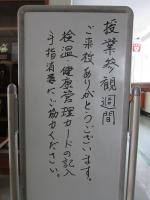 授業参観週間
ご来校ありがとうございます。
検温・健康管理カードの記入
手指消毒にご協力ください。